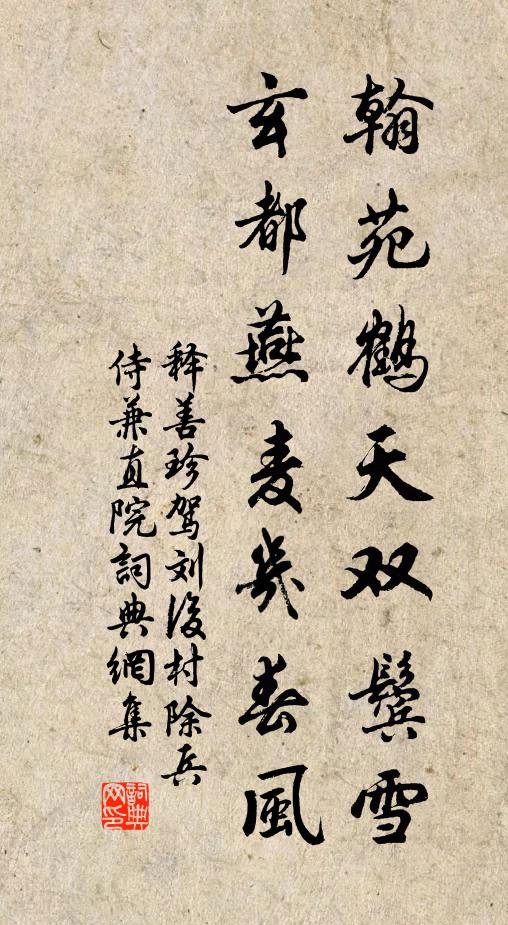 翰苑鹤天双鬓雪
玄都燕麦几春風
释善珍驾刘後村除兵
侍兼直院詞典網集
詞典网印